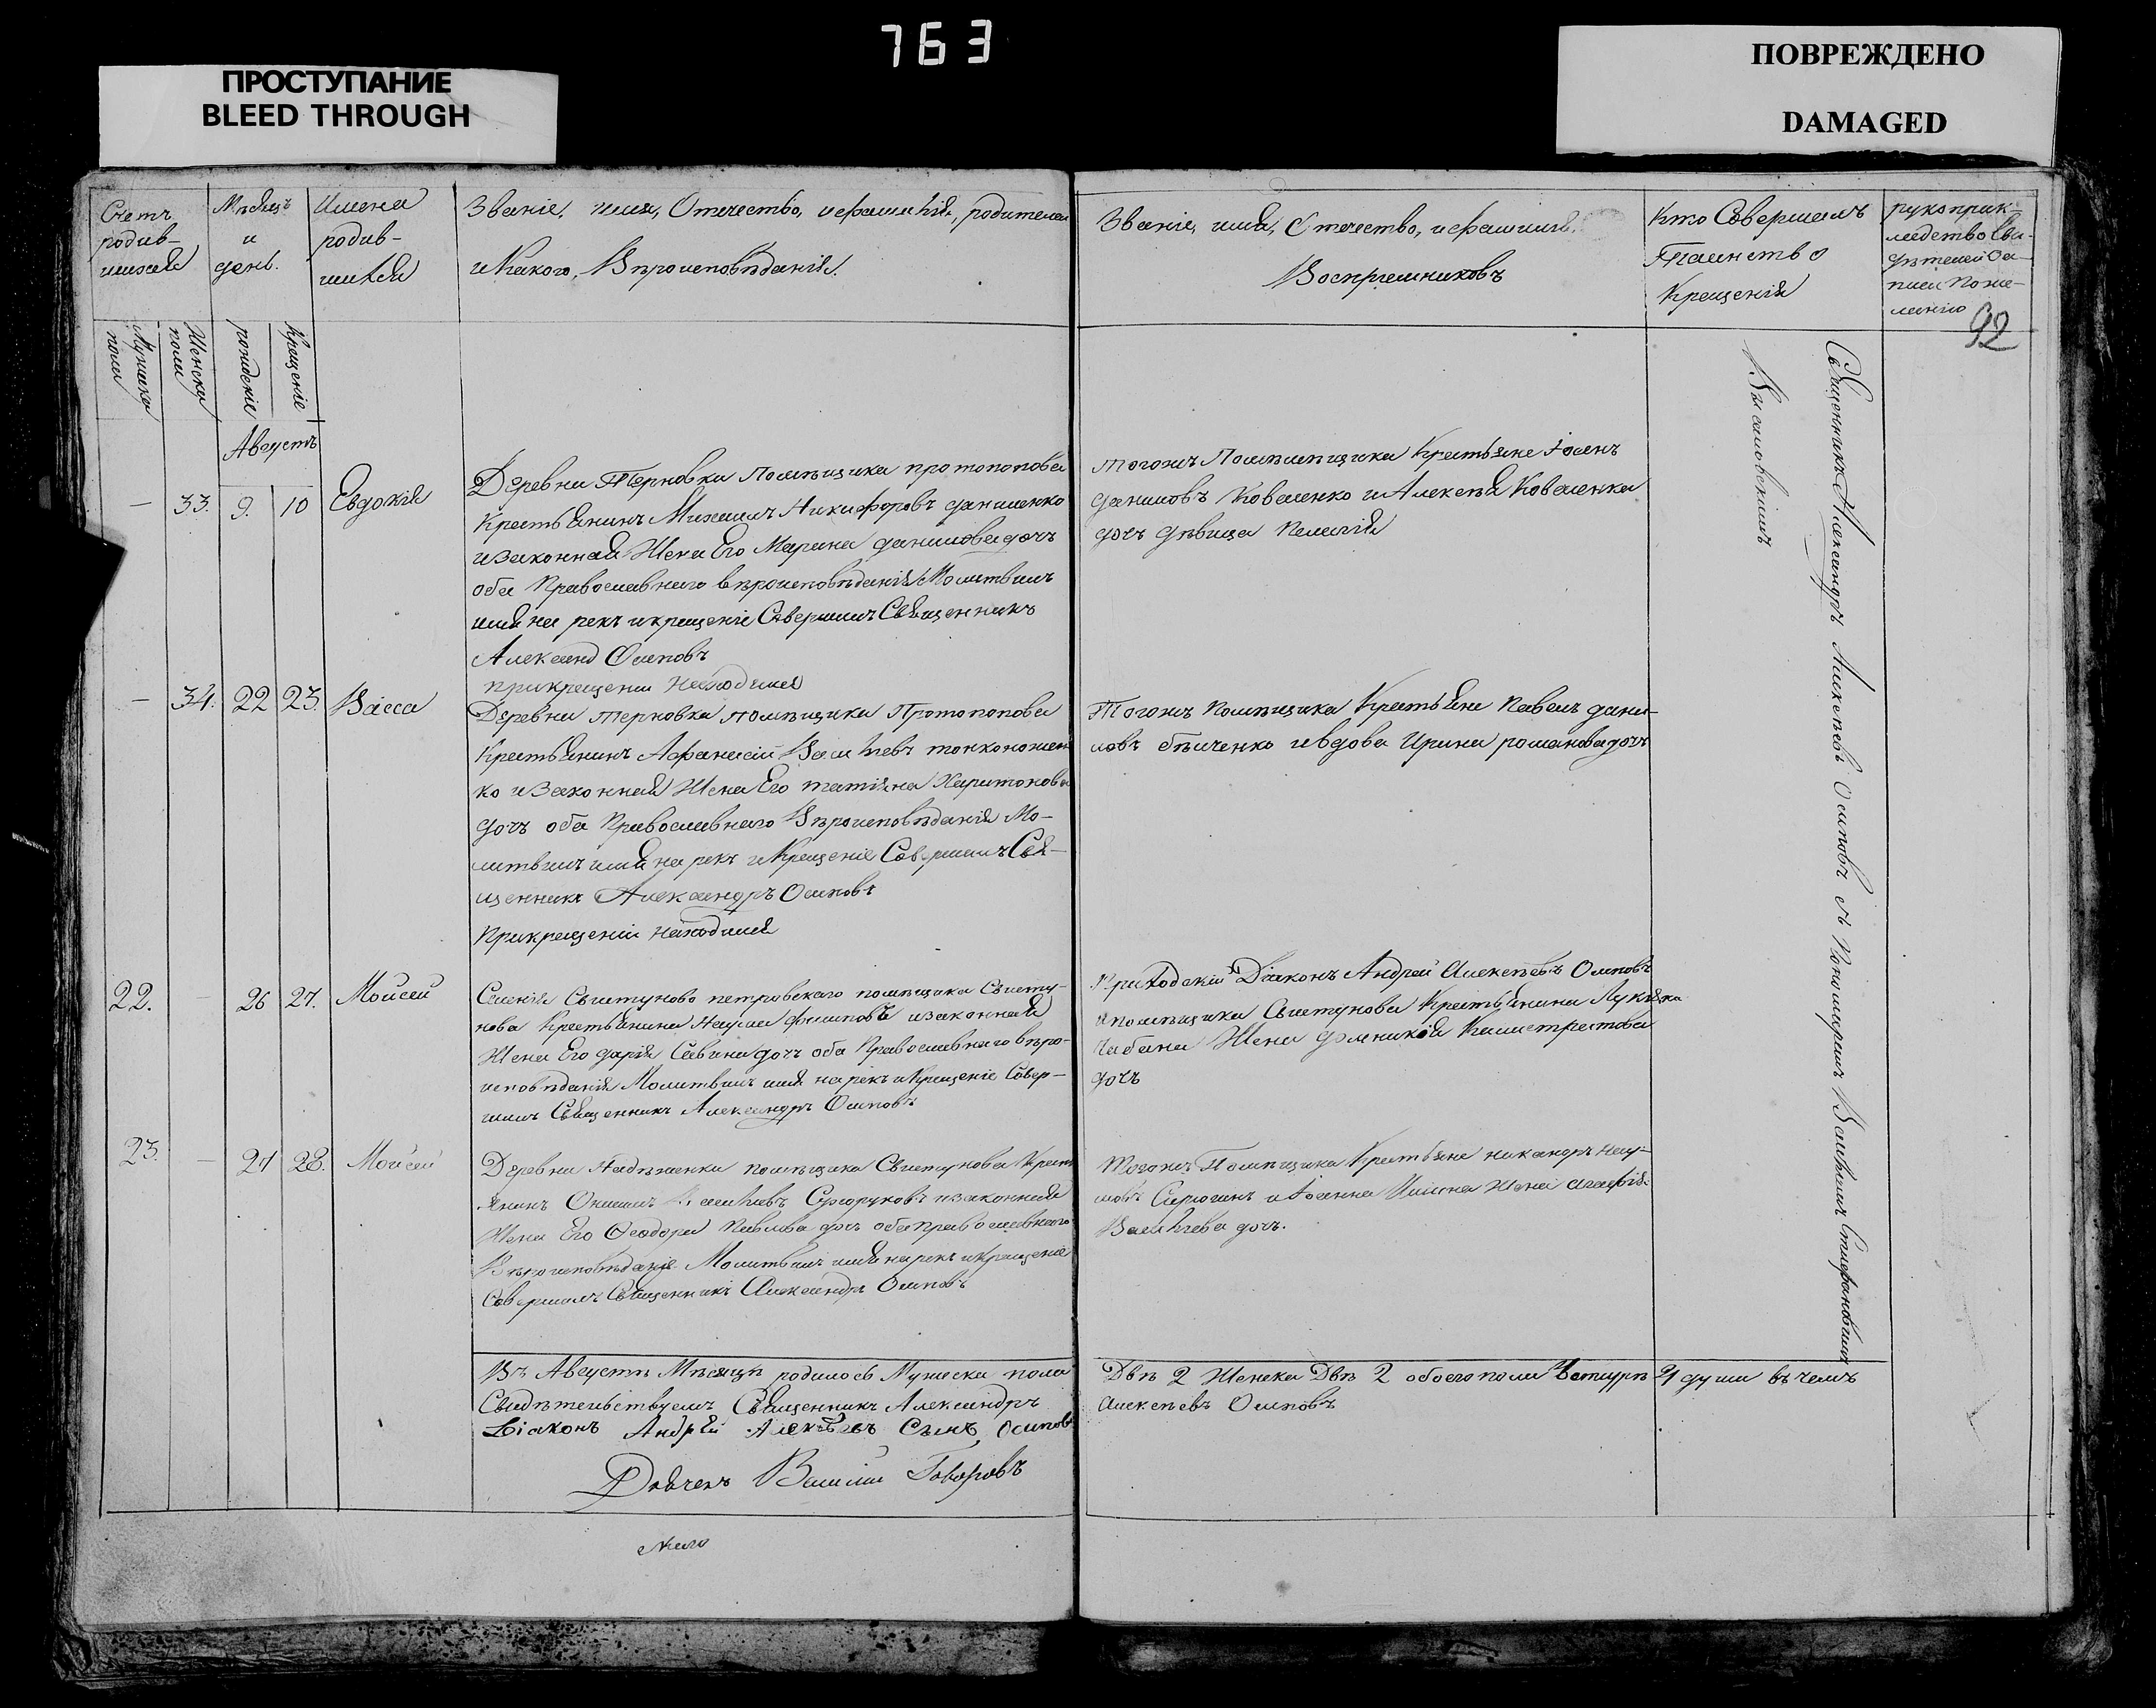 763
ПРОСТУПАНИЕ
BLEED THROUGH
ПОВРЕЖДЕНО
DAMAGED
Счетъ родив-шихся
Мѣсяцъ и день.
Имена родив-шихся
Званіе, имя, Отечество, и фамилія, родителей
и Какого, Вѣроисповѣданія.
Мужеска пола
Женска пола
рожденіе
Крещеніе
Званіе, имя, Отечество, и фамилія.
Воспріемниковъ
Кто Совершалъ
Таинство
Крещенія
рукоприк-
ладство Сви-
дѣтелей За-
писи Поже-
ланію
92
Августъ
— 33. 9. 10 Евдокія
Деревни Терновки Помѣщика протопопова
Крестьянинъ Михаилъ Никифоровъ даниленко
и законная Жена Его Марина данилова дочь
оба Православнаго вѣроисповѣданія Молитвилъ
имя на рекъ и крещеніе Совершилъ Священникъ
Александ Осиповъ
прикрещении находился
тогожъ Помѣщика Крестьяне
даниловъ Коваленко и Алексѣя Коваленка
дочь дѣвица Пелагія
— 34. 22 23. Васса
Деревни терновки помѣщика Протопопова
Крестьянинъ Афанасій Васильевъ тонконожен
ко и Законная Жена Его татіяна Харитонова
дочь оба Православнаго Вѣроисповѣданія Мо-
литвилъ имя на рекъ и Крещеніе Совершилъ Свя-
щенникъ Александръ Осиповъ
Прикрещеніи находился
Тогожъ Помѣщика Крестьяне Павелъ дани-
ловъ и вдова Ирина романова дочь
22. — 26 27. Мойсей
Селенія Свистуново петровскаго помѣщика Свисту-
нова Крестьянина Наума Филиповъ и законная
Жена Его дарія Савина дочь оба Православнаго вѣро-
исповѣданія Молитвилъ имя на рекъ и Крещеніе Совер-
шилъ Священникъ Александръ Осиповъ
Приходскій Діаконъ Андрей Алексѣевъ Осиповъ
и помѣщика Свистунова Крестьянина Лукіяна
Чабана Жена домникія Калистратова
дочь
23. — 27 28. Мойсей
Деревни Надѣженки помѣщика Свистунова Крест
янинъ Васильевъ Сухоруковъ и законная
Жена Его Феодора Павлова дочь оба православнаго
Вѣроисповѣданія Молитвилъ имя на рекъ и Крещеніе
Совершилъ Священникъ Александръ Осиповъ
Тогожъ Помѣщика Крестьяне никаноръ нау-
мовъ и жена агафія
Васильева дочь.
Священникъ Александръ Алексѣевъ Осиповъ съ Пономаремъ Василіемъ Стефановичемъ
Висановскимъ
Въ Августѣ Мѣсяцѣ родилось Мужеска пола Двѣ 2 Женска Двѣ 2 обоего пола Четыре 4 души въ чемъ
Свидѣтельствуемъ Священникъ Александръ Алексѣевъ Осиповъ
Діаконъ Андрѣй Алексѣевъ Сынъ Осиповъ
Василій Говоровъ